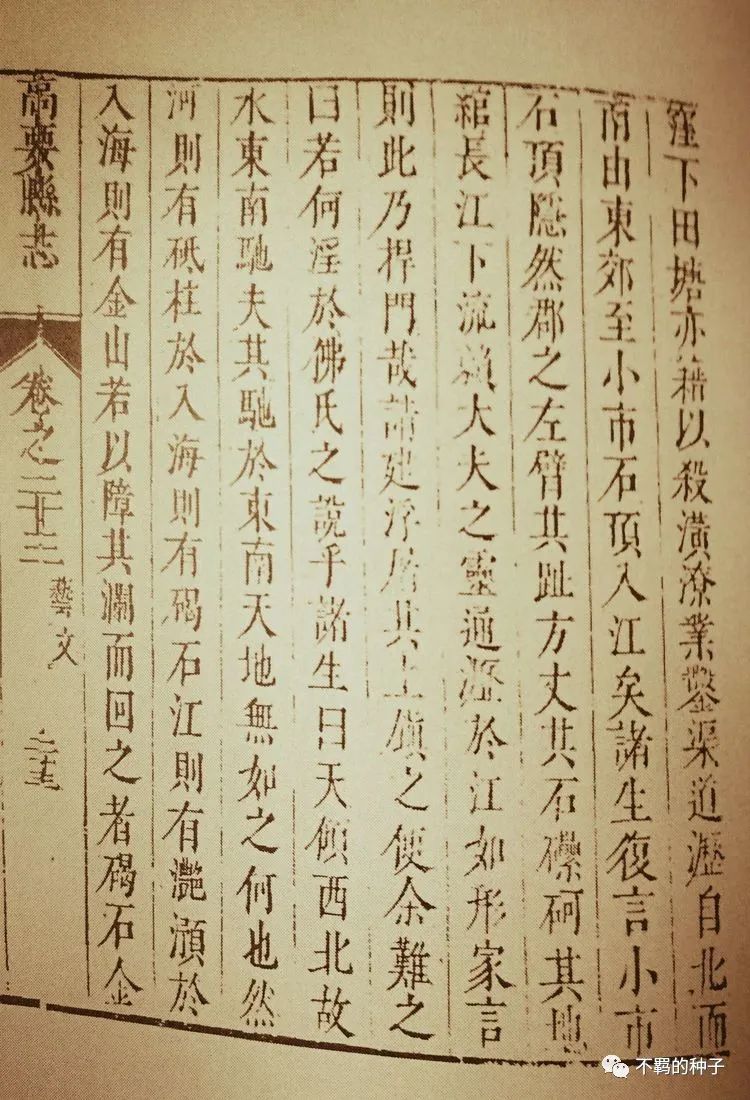 窪下田塘亦藉以殺潢潦業鑿渠道瀝自北而
南由東郊至小市石頂入江矣諸生復言小市
石頂隱然郡之左臂其趾方丈其石礧砢其地
綰長江下流賴大夫之靈通瀝於江如形家言
則此乃捍門哉請建浮屠其上鎮之便余難之
曰若何淫於佛氏之說乎諸生曰天傾西北故
水東南馳夫其馳於東南天地無如之何也然
河則有砥柱於入海則有碣石江則有灔澦於
入海則有金山若以障其瀾而回之者碣石金
高要縣志 卷之二十二 藝文
不羁的种子